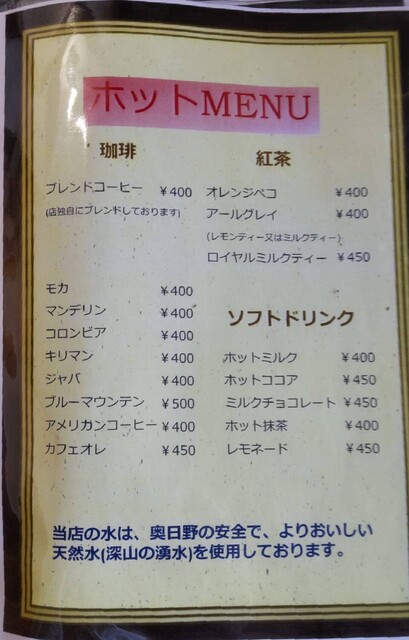 ホットMENU
珈琲
ブレンドコーヒー ￥400
(店独自にブレンドしております)
モカ ￥400
マンデリン ￥400
コロンビア ￥400
キリマン ￥400
ジャバ ￥400
ブルーマウンテン ￥500
アメリカンコーヒー ￥400
カフェオレ ￥450
紅茶
オレンジペコ ￥400
アールグレイ ￥400
(レモンティー又はミルクティー)
ロイヤルミルクティー ￥450
ソフトドリンク
ホットミルク ￥400
ホットココア ￥450
ミルクチョコレート ￥450
ホット抹茶 ￥400
レモネード ￥450
当店の水は、奥日野の安全で、よりおいしい
天然水(深山の湧水)を使用しております。